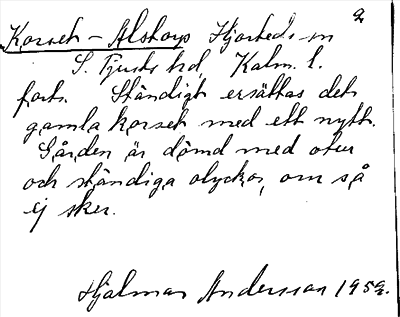 2
Korset - Alstorps Hjorteds sn
S. Tjusts hd, Kalm. l.
forts. Ständigt ersättas det
gamla korset med ett nytt.
Gården är dömd med otur
och ständiga olyckor, om så
ej sker.
Hjalmar Andersson 1952.